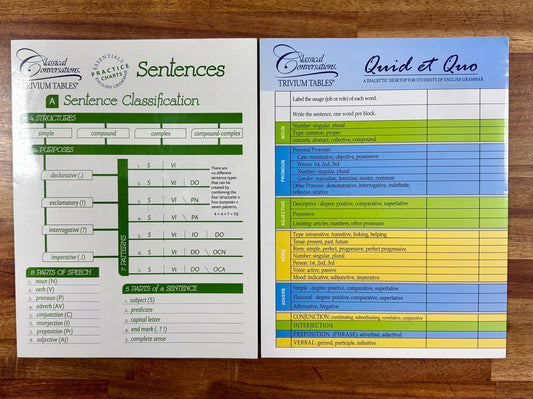 Classical
Conversations.
TRIVIUM TABLES®
ESSENTIALS
PRACTICE
CHARTS
ENGLISH GRAMMAR
Sentences
A Sentence Classification
4 STRUCTURES
simple compound complex compound-complex
4 PURPOSES
declarative (.)
exclamatory (!)
interrogative (?)
imperative (.!)
7 PATTERNS
1. S Vi
2. S Vt DO
3. S Vl PN
4. S Vl PA
5. S Vt IO DO
6. S Vt DO OCN
7. S Vt DO OCA
There are
112 different
sentence types
that can be
created by
combining the
four structures +
four purposes +
seven patterns.
4 × 4 × 7 = 112
8 PARTS OF SPEECH
1. noun (N)
2. verb (V)
3. pronoun (P)
4. adverb (AV)
5. conjunction (C)
6. interjection (I)
7. preposition (Pr)
8. adjective (AJ)
5 PARTS of a SENTENCE
1. subject (S)
2. predicate
3. capital letter
4. end mark (. ? !)
5. complete sense
Classical
Conversations.
TRIVIUM TABLES®
Quid et Quo
A DIALECTIC DESKTOP FOR STUDENTS OF ENGLISH GRAMMAR
Label the usage (job or role) of each word.
Write the sentence, one word per block.
NOUN
Number: singular, plural
Type: common, proper
concrete, abstract, collective, compound
PRONOUN
Personal Pronoun
Case: nominative, objective, possessive
Person: 1st, 2nd, 3rd
Number: singular, plural
Gender: masculine, feminine, neuter, common
Other Pronoun: demonstrative, interrogative, indefinite,
reflexive, relative
ADJECTIVE
Descriptive - degree: positive, comparative, superlative
Possessive
Limiting: articles, numbers, other pronouns
VERB
Type: intransitive, transitive, linking, helping
Tense: present, past, future
Form: simple, perfect, progressive, perfect progressive
Number: singular, plural
Person: 1st, 2nd, 3rd
Voice: active, passive
Mood: indicative, subjunctive, imperative
ADVERB
Simple - degree: positive, comparative, superlative
Flexional - degree: positive, comparative, superlative
Affirmative, Negative
CONJUNCTION: coordinating, subordinating, correlative, conjunctive
INTERJECTION
PREPOSITION (PHRASE): adverbial, adjectival
VERBAL: gerund, participle, infinitive